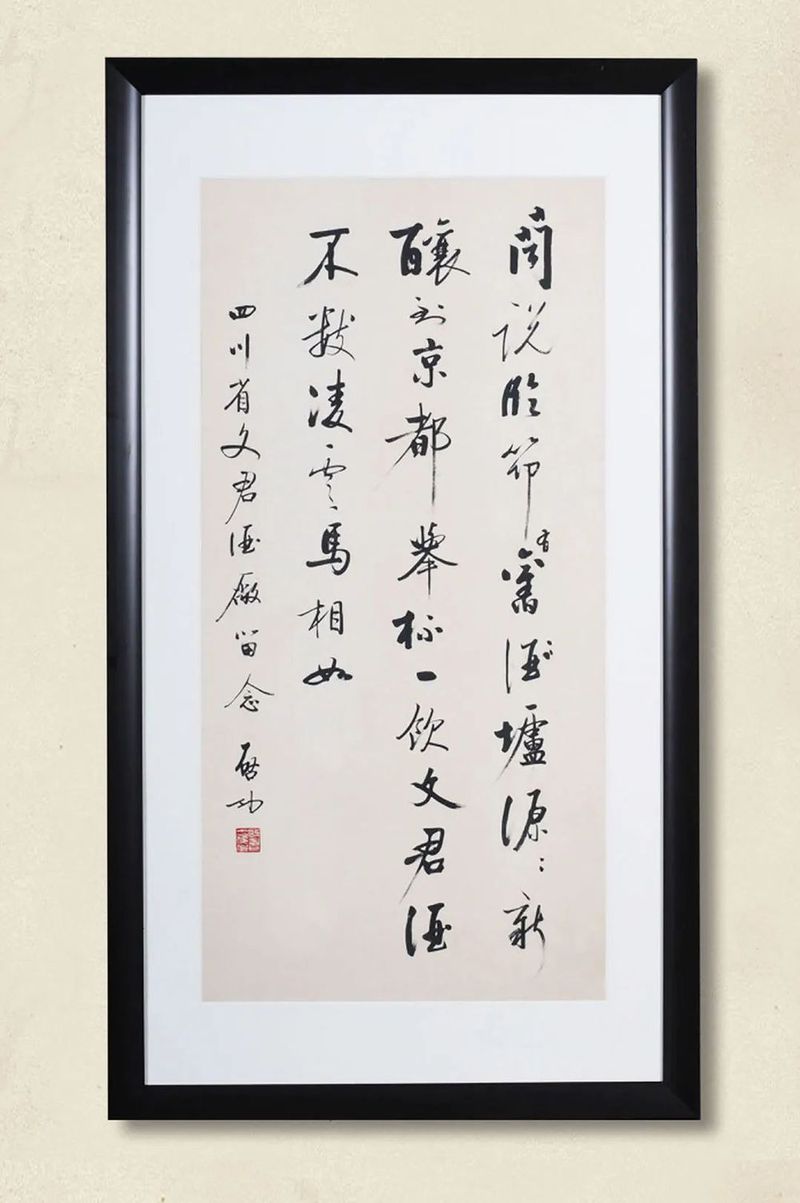 聞说临邛有舊酒壚源〻新
釀到京都舉杯一飲文君酒
不数凌雲馬相如
四川省文君酒廠留念 启功